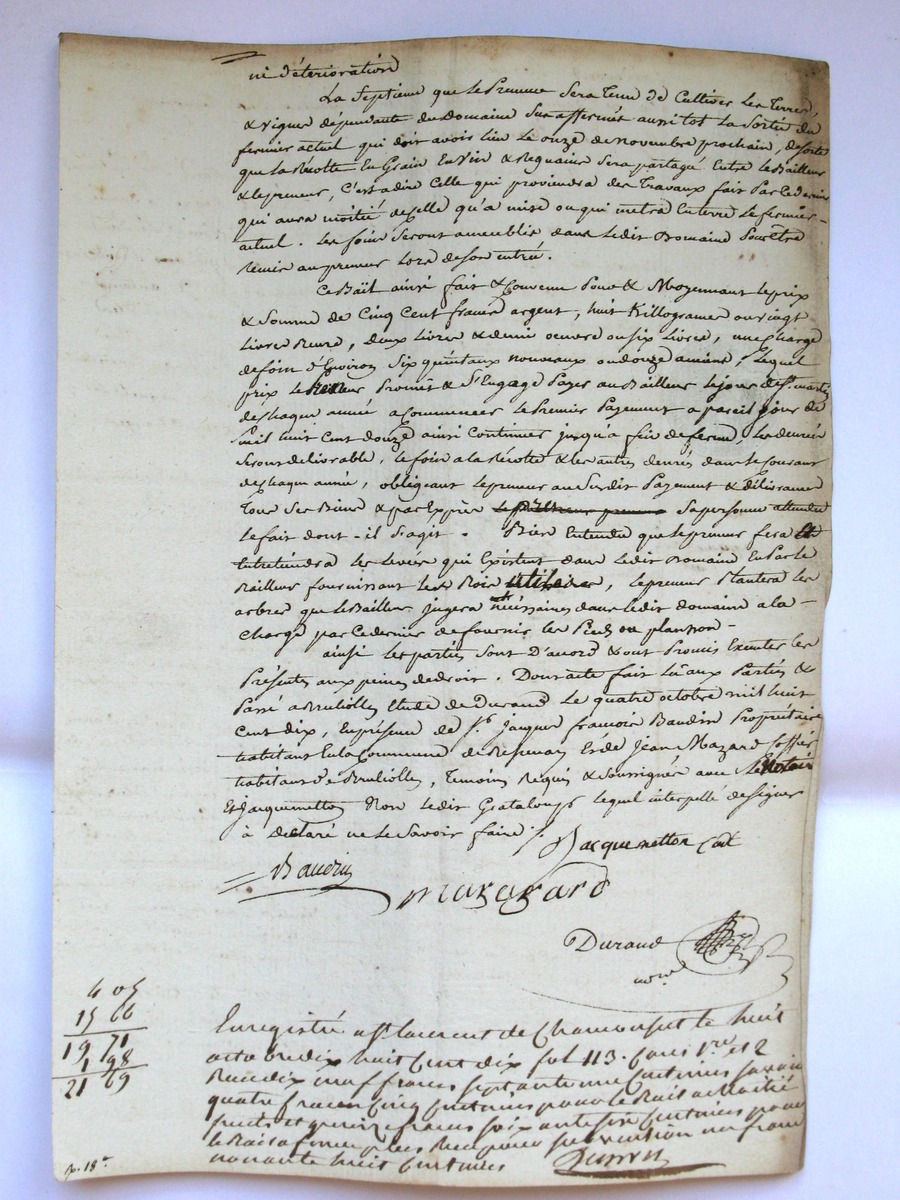 ni déterioration
La Septieme que le Preneur Sera Tenu de Cultiver les Terres,
& vignes dépendante du Domaine Sus affermé aussitot La Sortie du
fermier actuel qui doit avoir lieu Le onze de novembre prochain, de sorte
que la Récolte En Grain En Vin & Reguains Sera partagé Entre le Bailleur
& le preneur, C'est adire Celle qui proviendra des Travaux fait Par le dernier
qui aura moitié de celle qu'a mise ou qui metra En terre Le fermier
actuel. Les foins Seront ameublis dans Ledit Domaine Pour Être
Remis au preneur Lors de Son entré.
Ce Bail ainsi fait & Convenu Pour & Moyennant Le prix
& Somme de Cinq Cent francs argent, huit Killogrames ou vingt
Livres Beure, deux Livres & demi oeuvre ou six Livres, une Charge
de foin d'Environ Six quintaux nouveaux ou douze anciens, Lequel
prix Le Preneur Promêt & S'Engage Payer au Bailleur le jour de St. martin
de chaque année a Commencer Le Premier Payement a pareil jour de
mil huit Cent douze ainsi Continuer jusqu'a fin de ferme, Les denrées
Seront délivrable, Le foin a la Récolte & les autres denrés dans le Courant
de chaque année, obligeant Le preneur au Susdit Payement & délivrance
Tous Ses Biens & par Exprès Sa personne attendu
Le fait dont-il S'agit. Bien Entendu que Le preneur fera &
Entretiendra les qui Existent dans Ledit Domaine En Par Le
Bailleur fournissant Les Bois utiles, Le preneur Plantera les
arbres que Le Bailleur jugera nécéssaires dans Ledit domaine a la
charge par Ce dernier de fournir les Pieds ou planson
ainsi Les parties Sont D'acord & ont Promis Exécuter les
Présentes aux peines de droit. Dont acte fait Lû aux Parties &
Passé a Brulliolles Etude de Durand Le quatre octobre mil huit
Cent dix, En présence de Sr. Jacques francois Baudin Propriétaire
habitant En la Commune de & de Jean Mazard
habitant de Brulliolles, Temoins Requis & Soussignés avec Le Notaire
Et Jacquemetton Non Ledit Grataloup Lequel interpellé de Signer
a déclaré ne Le Savoir faire.
Jacquemetton
Baudin
Mazazard
Durand
nore
4 05
15 66
19 71
1 98
21 69
Enregistré a St Laurent de Chamousset le huit
octobre dix huit Cent dix fol 113. Cases 1re et 2
Recu dix neuf francs septante un Centimes savoir
quatre francs Cinq Centimes pour le Bail a moitié
fruits et quinze francs soixante six Centimes pour
le Bail a ferme, plus Recu pour subvention un franc
nonante huit Centimes
p. 18e